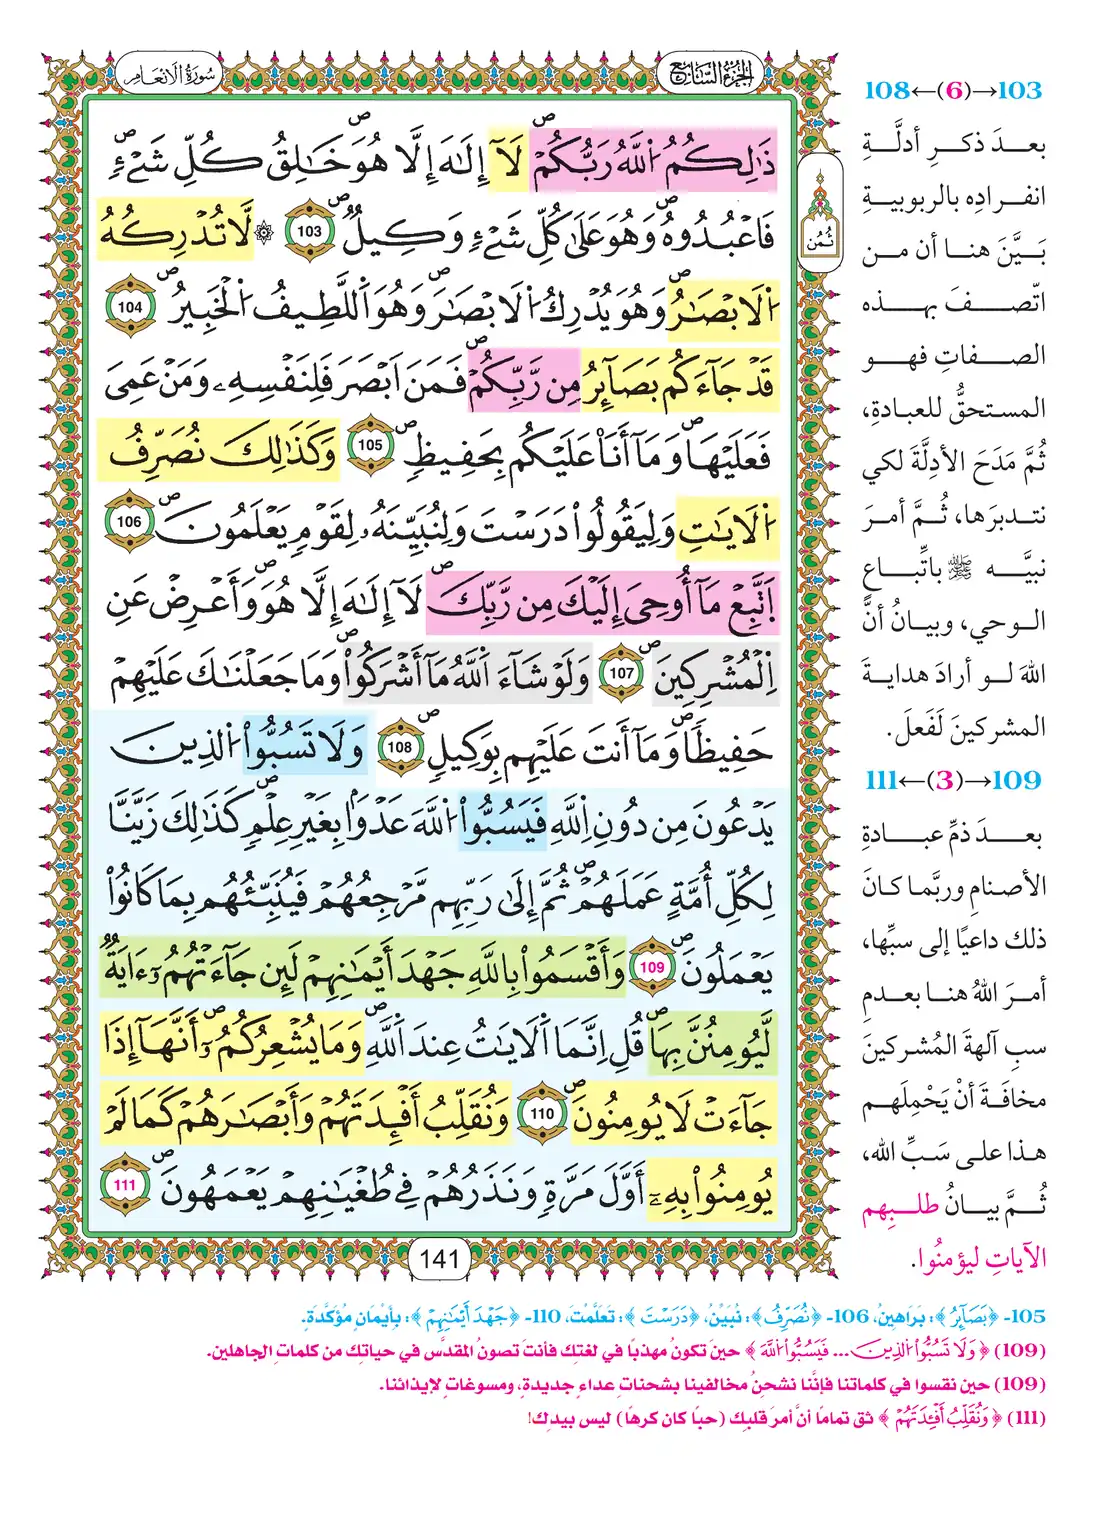 سُورَةُ الأنْعَام
الجُزءُ السَّابِع
ذَٰلِكُمُ اُ۬للَّهُ رَبُّكُمْۖ لَآ إِلَٰهَ إِلَّا هُوَۖ خَٰلِقُ كُلِّ شَےْءٖ
فَاعْبُدُوهُۖ وَهُوَ عَلَىٰ كُلِّ شَےْءٖ وَكِيلٞۖ 103 ۞ لَّا تُدْرِكُهُ
اُ۬لَابْصَٰرُۖ وَهُوَ يُدْرِكُ اُ۬لَابْصَٰرَۖ وَهُوَ اَ۬للَّطِيفُ اُ۬لْخَبِيرُۖ 104
قَدْ جَآءَكُم بَصَآئِرُ مِن رَّبِّكُمْۖ فَمَنَ اَبْصَرَ فَلِنَفْسِهِۦ وَمَنْ عَمِىَ
فَعَلَيْهَاۖ وَمَآ أَنَا۠ عَلَيْكُم بِحَفِيظٖۖ 105 وَكَذَٰلِكَ نُصَرِّفُ
اُ۬لَايَٰتِ وَلِيَقُولُواْ دَرَسْتَ وَلِنُبَيِّنَهُۥ لِقَوْمٖ يَعْلَمُونَۖ 106
اَ۪تَّبِعْ مَآ أُوحِىَ إِلَيْكَ مِن رَّبِّكَۖ لَآ إِلَٰهَ إِلَّا هُوَۖ وَأَعْرِضْ عَنِ
اِ۬لْمُشْرِكِينَۖ 107 وَلَوْ شَآءَ اَ۬للَّهُ مَآ أَشْرَكُواْۖ وَمَا جَعَلْنَٰكَ عَلَيْهِمْ
حَفِيظاٗۖ وَمَآ أَنتَ عَلَيْهِم بِوَكِيلٖۖ 108 وَلَا تَسُبُّواْ اُ۬لذِينَ
يَدْعُونَ مِن دُونِ اِ۬للَّهِ فَيَسُبُّواْ اُ۬للَّهَ عَدْوَاۢ بِغَيْرِ عِلْمٖۖ كَذَٰلِكَ زَيَّنَّا
لِكُلِّ أُمَّةٍ عَمَلَهُمْۖ ثُمَّ إِلَىٰ رَبِّهِم مَّرْجِعُهُمْ فَيُنَبِّئُهُم بِمَا كَانُواْ
يَعْمَلُونَۖ 109 وَأَقْسَمُواْ بِاللَّهِ جَهْدَ أَيْمَٰنِهِمْ لَئِن جَآءَتْهُمُۥٓ ءَايَةٞ
لَّيُومِنُنَّ بِهَاۖ قُلِ اِنَّمَا اَ۬لَايَٰتُ عِندَ اَ۬للَّهِۖ وَمَا يُشْعِرُكُمُۥٓۖ أَنَّهَآ إِذَا
جَآءَتْ لَا يُومِنُونَۖ 110 وَنُقَلِّبُ أَفْـِٕدَتَهُمْ وَأَبْصَٰرَهُمْ كَمَا لَمْ
يُومِنُواْ بِهِۦٓ أَوَّلَ مَرَّةٖ وَنَذَرُهُمْ فِے طُغْيَٰنِهِمْ يَعْمَهُونَۖ 111
ثُمُن
141
103→(6)←108
بعدَ ذكرِ أدلَّةِ
انفرادِه بالربوبيةِ
بَيَّنَ هنا أن من
اتّصفَ بهذه
الصفاتِ فهو
المستحقُّ للعبادةِ،
ثُمَّ مَدَحَ الأدِلَّةَ لكي
نتدبرَها، ثُمَّ أمرَ
نبيَّه ﷺ باتِّباعِ
الوحي، وبيانُ أنَّ
اللهَ لو أرادَ هدايةَ
المشركينَ لَفَعلَ.
109→(3)←111
بعدَ ذمِّ عبادةِ
الأصنامِ وربَّما كانَ
ذلك داعيًا إلى سبِّها،
أمرَ اللهُ هنا بعدمِ
سبِ آلهةَ المُشركينَ
مخافَةَ أنْ يَحْمِلَهم
هذا على سَبِّ الله،
ثُمَّ بيانُ طلبِهم
الآياتِ ليؤمنُوا.
105- ﴿بَصَآئِرُ﴾: بَرَاهِينُ، 106- ﴿نُصَرِّفُ﴾: نُبَيِّنُ، ﴿دَرَسْتَ﴾: تَعَلَّمْتَ، 110- ﴿جَهْدَ أَيْمَٰنِهِمْ﴾: بِأَيْمَانٍ مُؤَكَّدَةٍ.
(109) ﴿وَلَا تَسُبُّواْ اُ۬لذِينَ... فَيَسُبُّواْ اُ۬للَّهَ﴾ حينَ تكونُ مهذبًا في لغتِك فأنتَ تصونُ المقدَّس في حياتِك من كلماتِ الجاهلين.
(109) حين نقسوا في كلماتنا فإنَّنا نشحنُ مخالفينا بشحناتِ عداءٍ جديدةٍ، ومسوغاتٍ لإيذائنا.
(111) ﴿وَنُقَلِّبُ أَفْـِٕدَتَهُمْ﴾ ثق تمامًا أنَّ أمرَ قلبِك (حبًا كان كرهًا) ليس بيدِك!